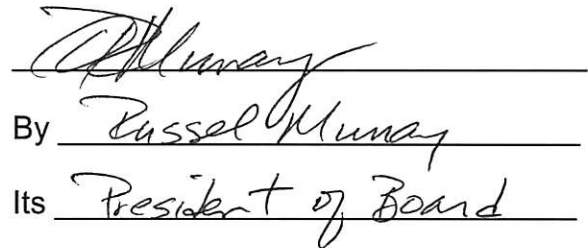 RMurray
By Russel Murray
Its President of Board